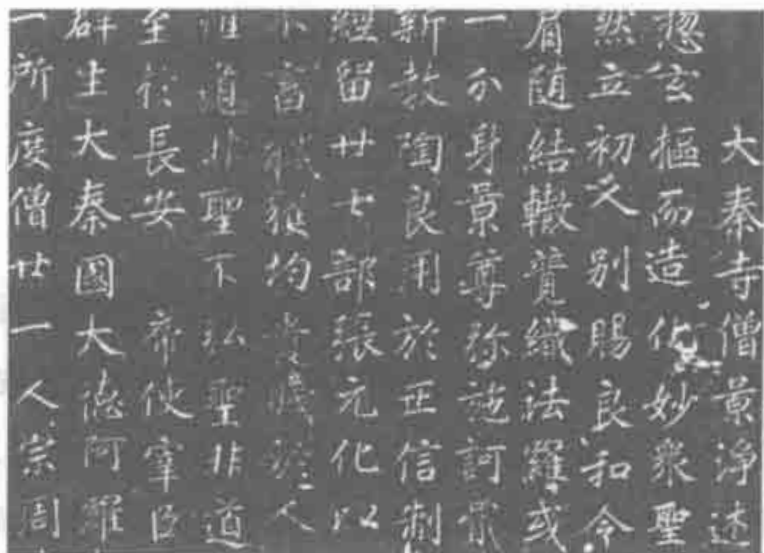 大秦寺僧景淨述
惣玄樞而造化妙衆聖
然立初人別賜良和令
肩随結轍競織法羅或
一分身景尊弥施訶戢
新教陶良用於正信制
經留廿七部張元化以
不畜臧獲均貴賤於人
惟道非聖不弘聖非道
至於長安 帝使宰臣
群生大秦國大德阿羅
一所度僧廿一人宗周